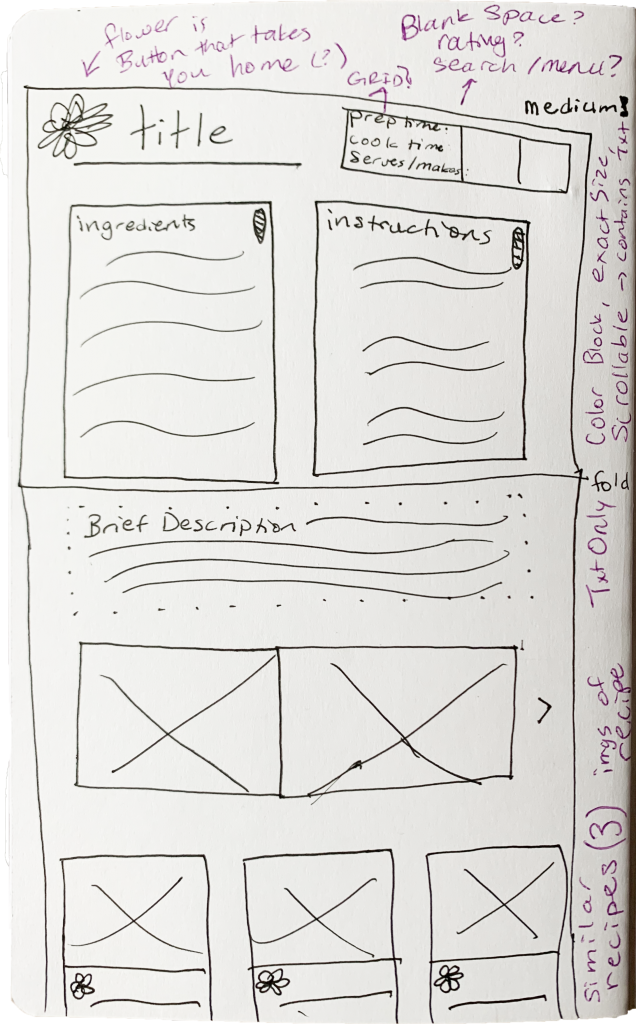 flower is
Button that takes
you home (?)
Blank Space?
rating?
search/menu?
GRID?
medium!
title
prep time:
cook time
Serves/makes:
ingredients
instructions
Color Block, exact size,
Scrollable → contains Txt
fold
Brief Description
Txt Only
imgs of
recipe
>
similar
recipes (3)